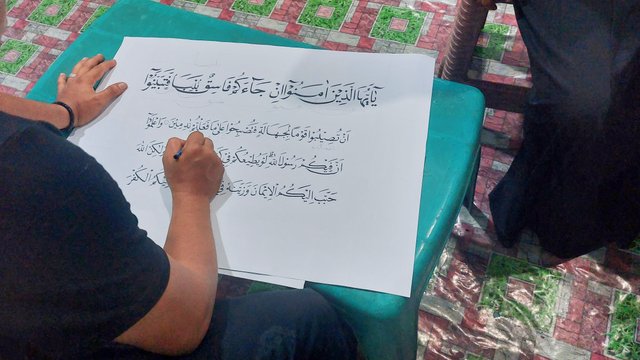 يٰٓاَيُّهَا الَّذِيْنَ اٰمَنُوْٓا اِنْ جَاۤءَكُمْ فَاسِقٌۢ بِنَبَاٍ فَتَبَيَّنُوْٓا
اَنْ تُصِيْبُوْا قَوْمًا بِجَهَالَةٍ فَتُصْبِحُوْا عَلٰى مَا فَعَلْتُمْ نٰدِمِيْنَ وَاعْلَمُوْٓا
اَنَّ فِيْكُمْ رَسُوْلَ اللّٰهِ لَوْ يُطِيْعُكُمْ فِيْ وَلٰكِنَّ اللّٰهَ
حَبَّبَ اِلَيْكُمُ الْاِيْمَانَ وَزَيَّنَهٗ فِيْ الْكُفْرَ